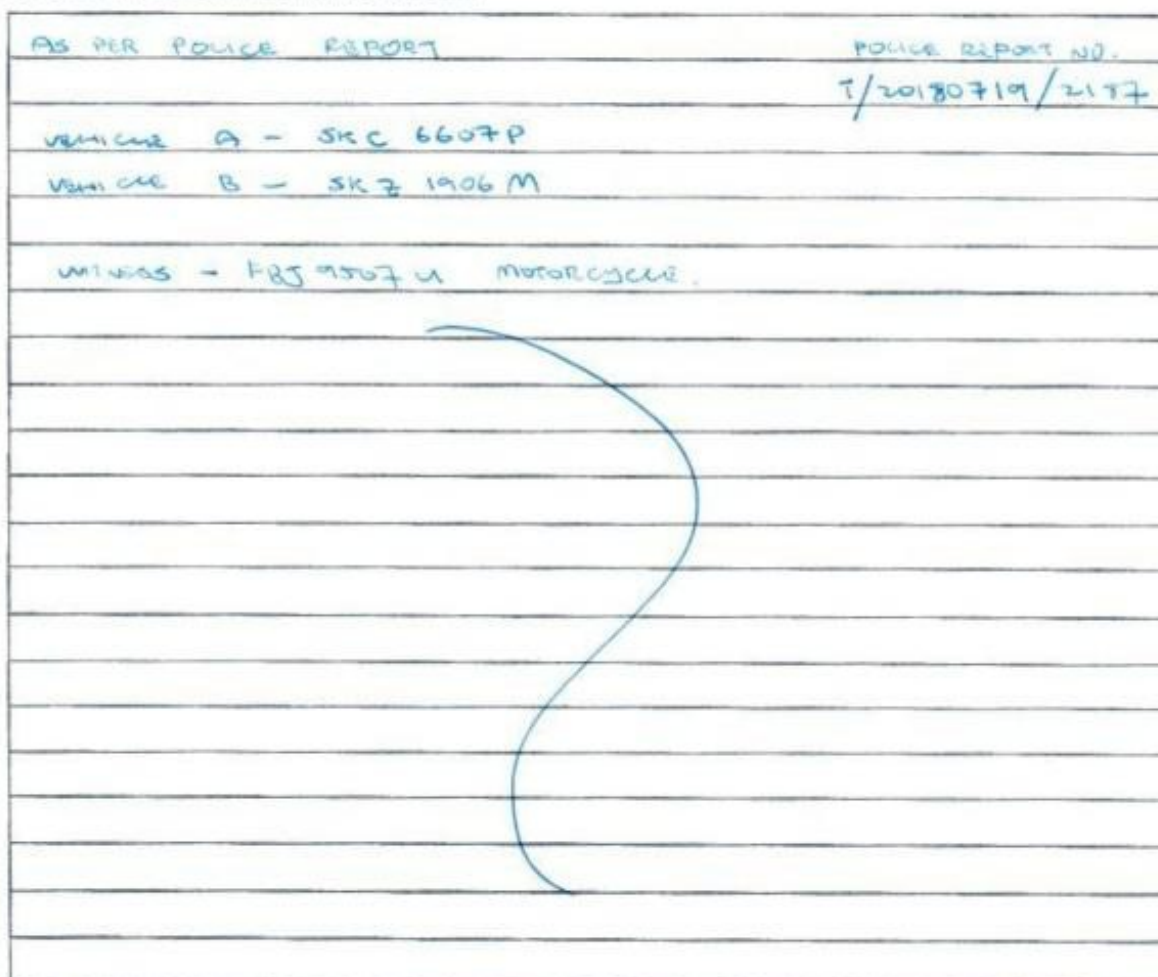 AS PER POLICE REPORT
POLICE REPORT NO.
T/20180719/2187
VEHICLE A - SKC 6607P
VEHICLE B - SKZ 1906M
- FBJ 9507 U MOTORCYCLE.